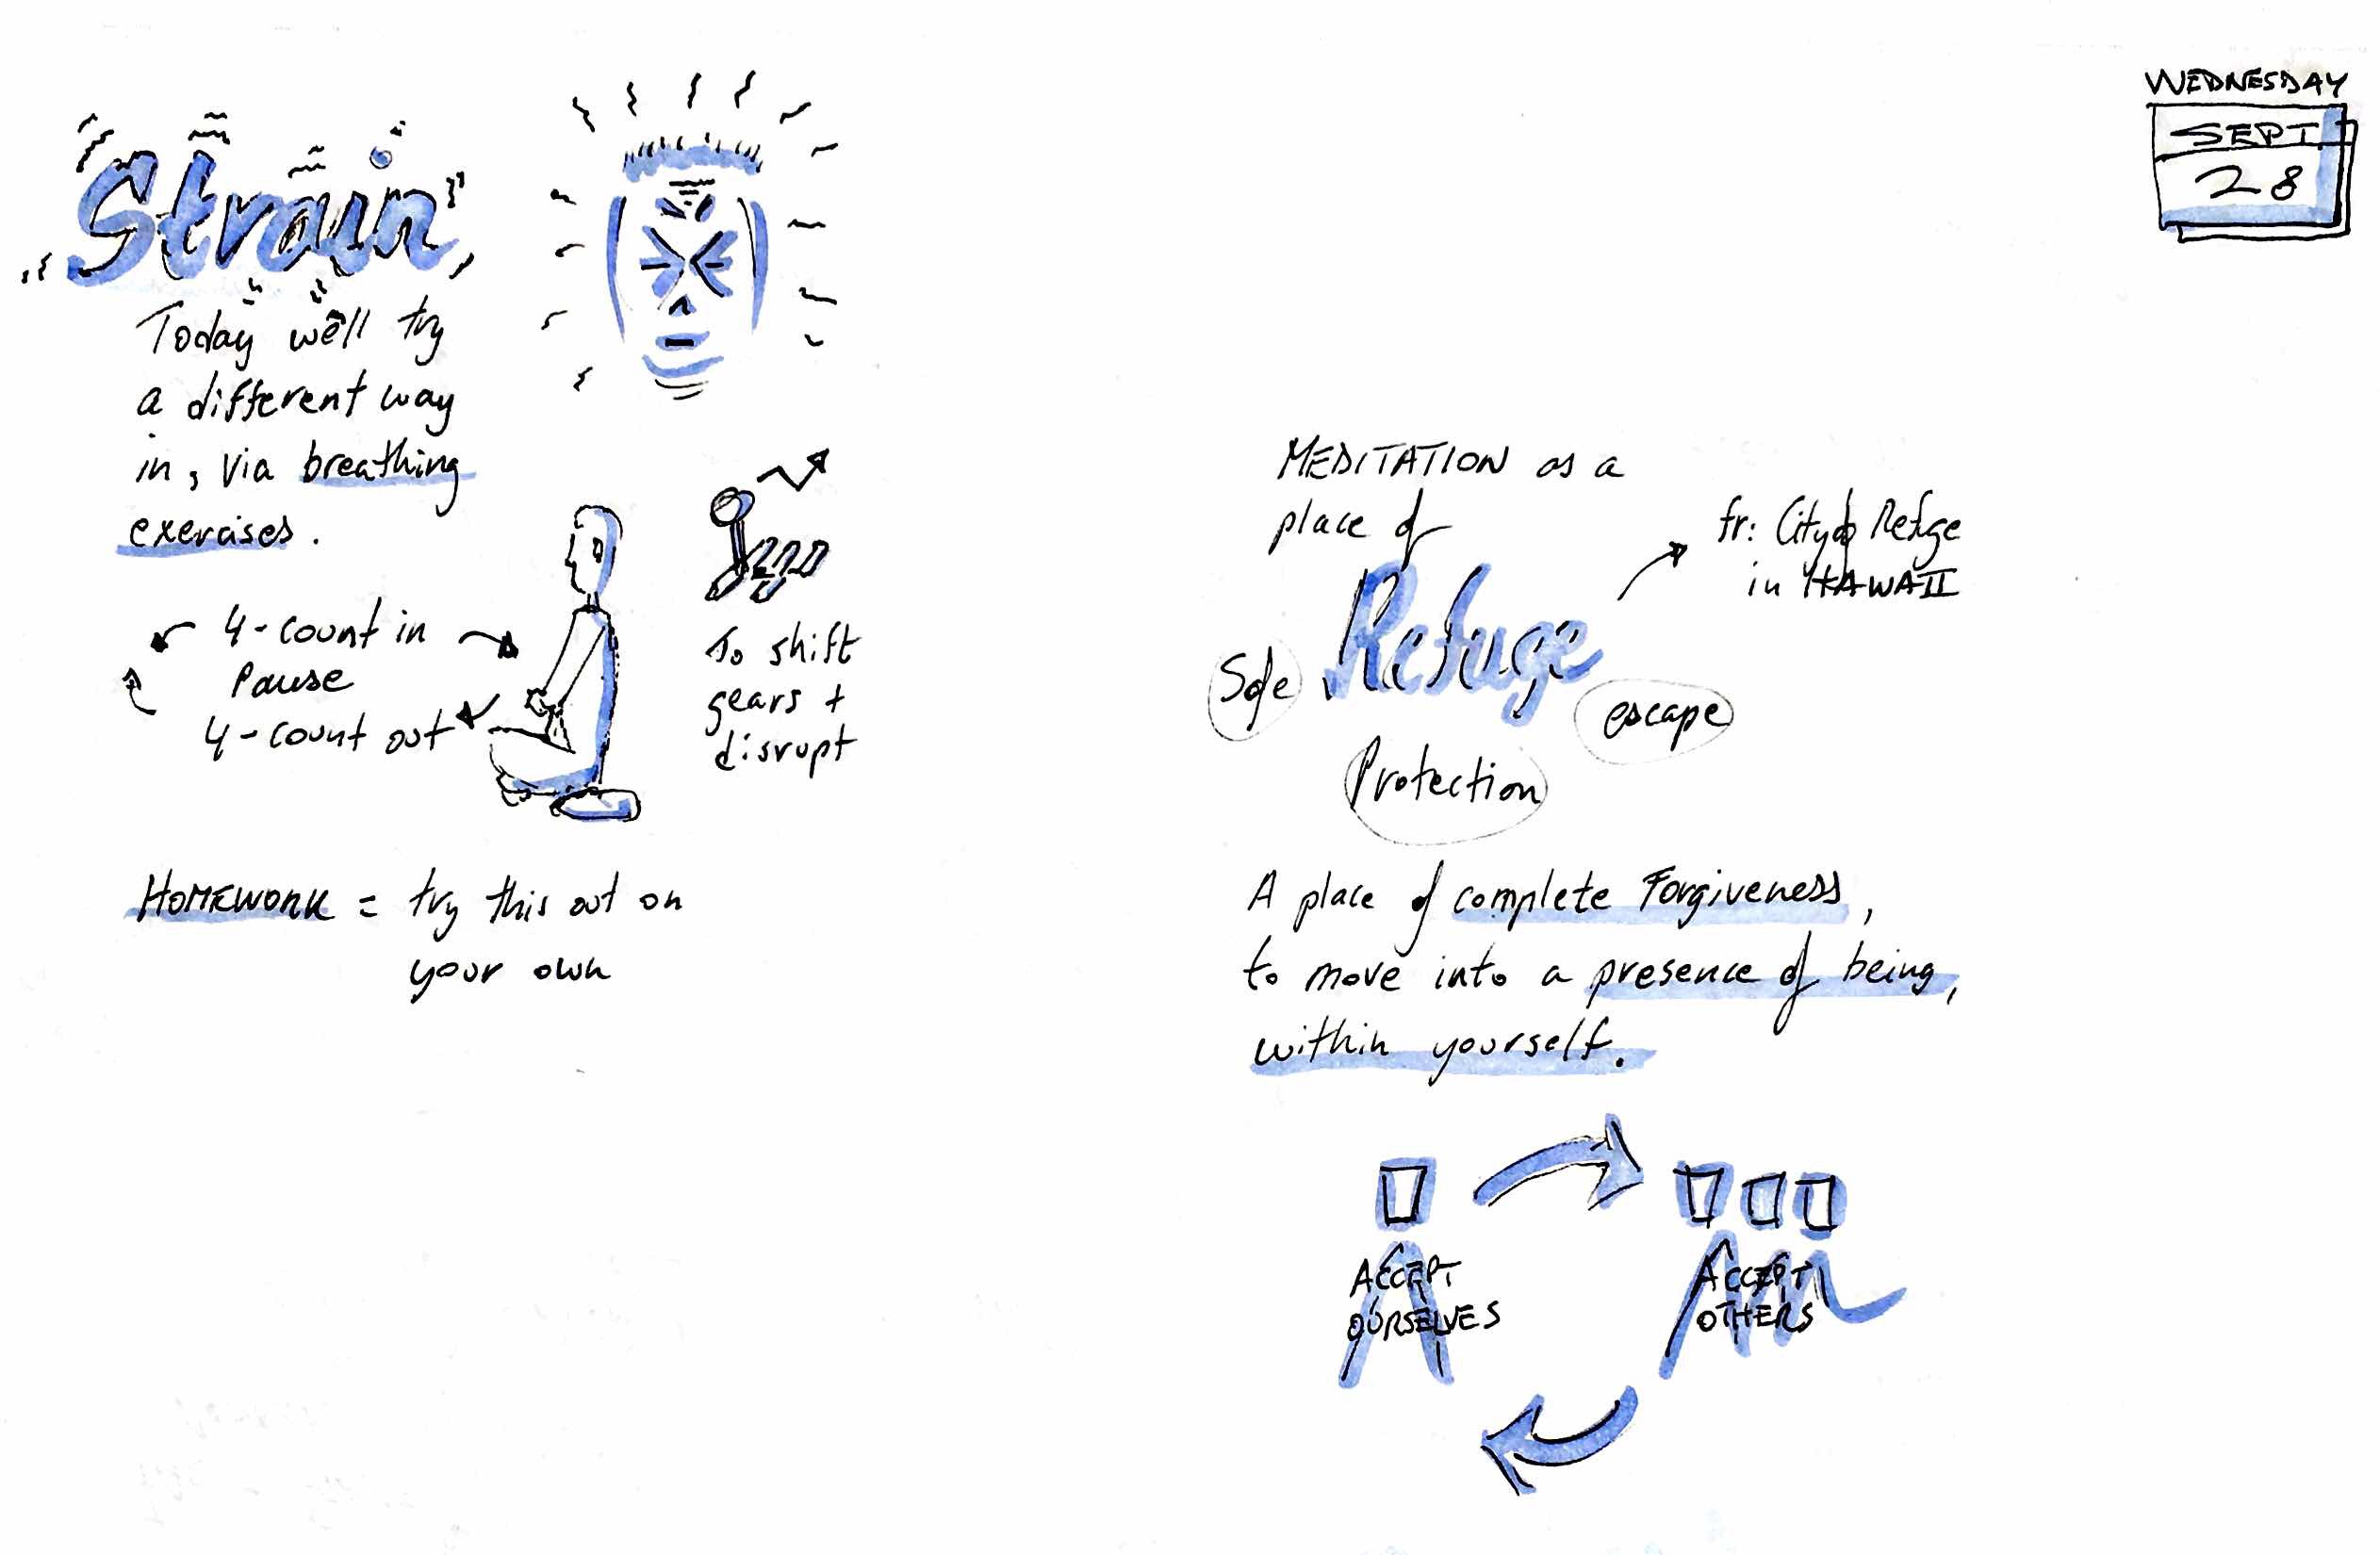 Strain,
Today we'll try
a different way
in, via breathing
exercises.
4-count in
Pause
4-count out
To shift
gears +
disrupt
HOMEWORK = try this out on
your own
WEDNESDAY
SEPT
28
MEDITATION as a
place of
Refuge
fr: City of Refuge
in HAWAII
Safe
escape
Protection
A place of complete Forgiveness,
to move into a presence of being,
within yourself.
ACCEPT
OURSELVES
ACCEPT
OTHERS